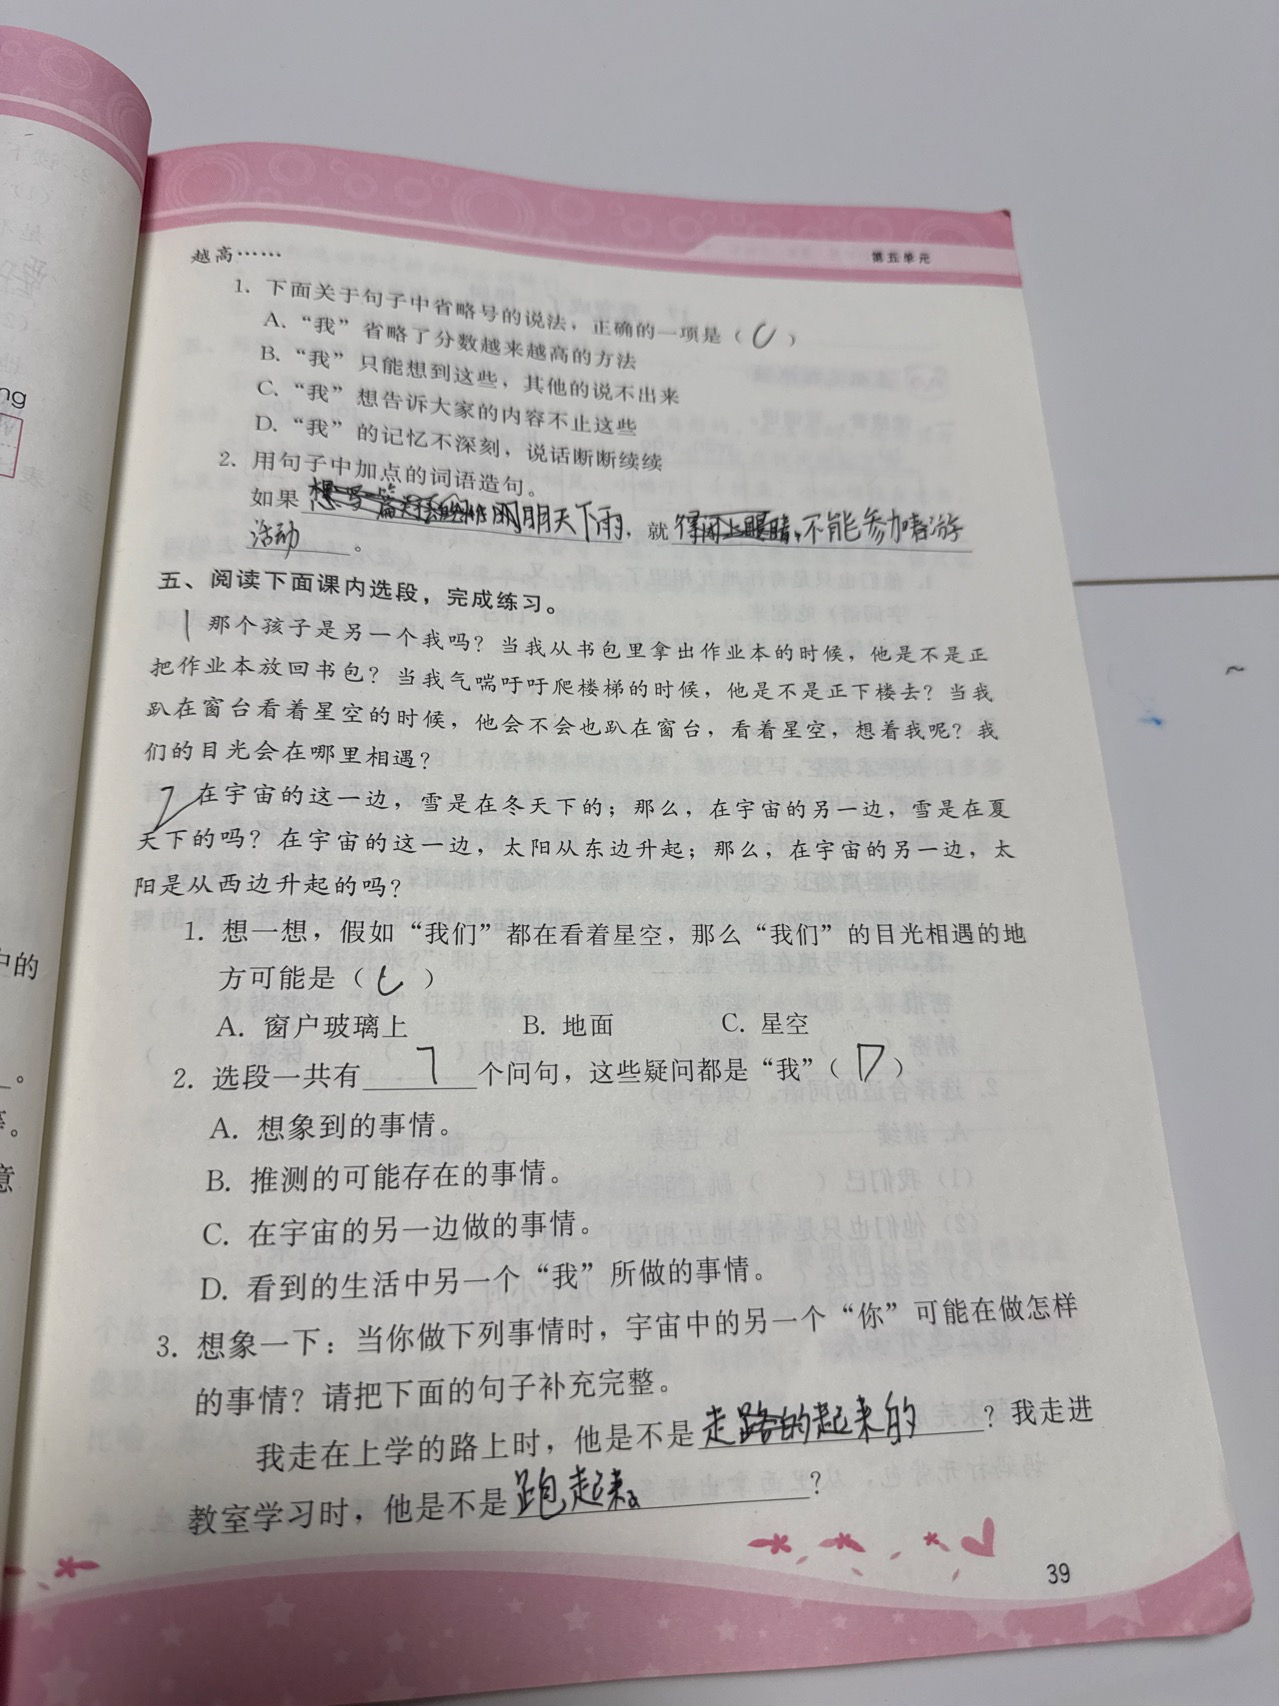 越高……
第五单元
1. 下面关于句子中省略号的说法，正确的一项是（ C ）
A. “我”省略了分数越来越高的方法
B. “我”只能想到这些，其他的说不出来
C. “我”想告诉大家的内容不止这些
D. “我”的记忆不深刻，说话断断续续
2. 用句子中加点的词语造句。
如果 明天下雨，就 不能参加春游
活动。
五、阅读下面课内选段，完成练习。
1 那个孩子是另一个我吗？当我从书包里拿出作业本的时候，他是不是正
把作业本放回书包？当我气喘吁吁爬楼梯的时候，他是不是正下楼去？当我
趴在窗台看着星空的时候，他会不会也趴在窗台，看着星空，想着我呢？我
们的目光会在哪里相遇？
在宇宙的这一边，雪是在冬天下的；那么，在宇宙的另一边，雪是在夏
天下的吗？在宇宙的这一边，太阳从东边升起；那么，在宇宙的另一边，太
阳是从西边升起的吗？
1. 想一想，假如“我们”都在看着星空，那么“我们”的目光相遇的地
方可能是（ C ）
A. 窗户玻璃上 B. 地面 C. 星空
2. 选段一共有 7 个问句，这些疑问都是“我”（ D ）
A. 想象到的事情。
B. 推测的可能存在的事情。
C. 在宇宙的另一边做的事情。
D. 看到的生活中另一个“我”所做的事情。
3. 想象一下：当你做下列事情时，宇宙中的另一个“你”可能在做怎样
的事情？请把下面的句子补充完整。
我走在上学的路上时，他是不是走路的起来的？我走进
教室学习时，他是不是跑起来？
39
ng
中的
。
意